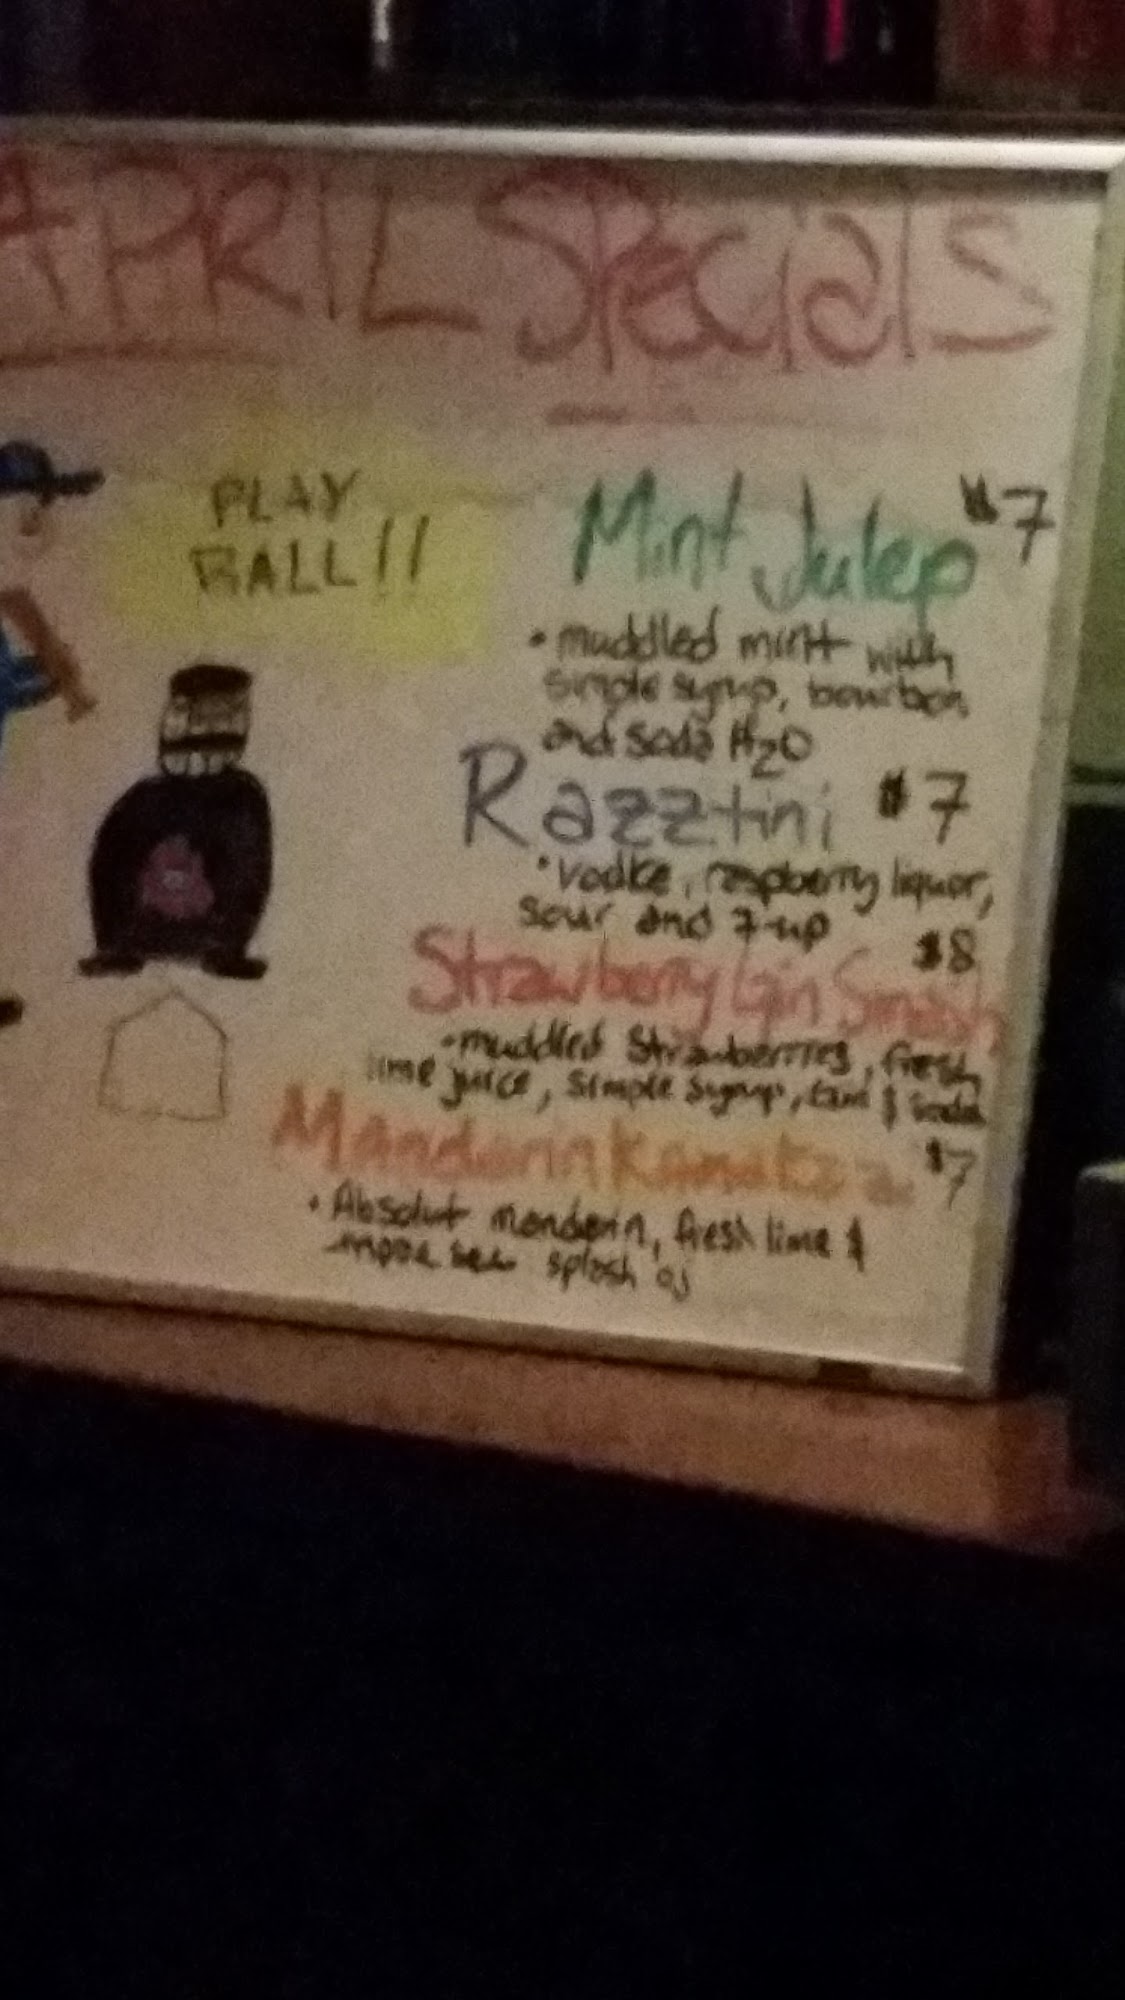 APRIL Specials
PLAY
BALL!!
Mint Julep $7
• muddled mint with
simple syrup, bourbon
and soda H2O
Razztini $7
• vodka, raspberry liquor,
sour and 7-up
$8
Strawberry Gin Smash
• muddled Strawberries, fresh
lime juice, simple syrup, &
Mandarin Kamakza $7
• Absolut mandarin, fresh lime &
splash oj